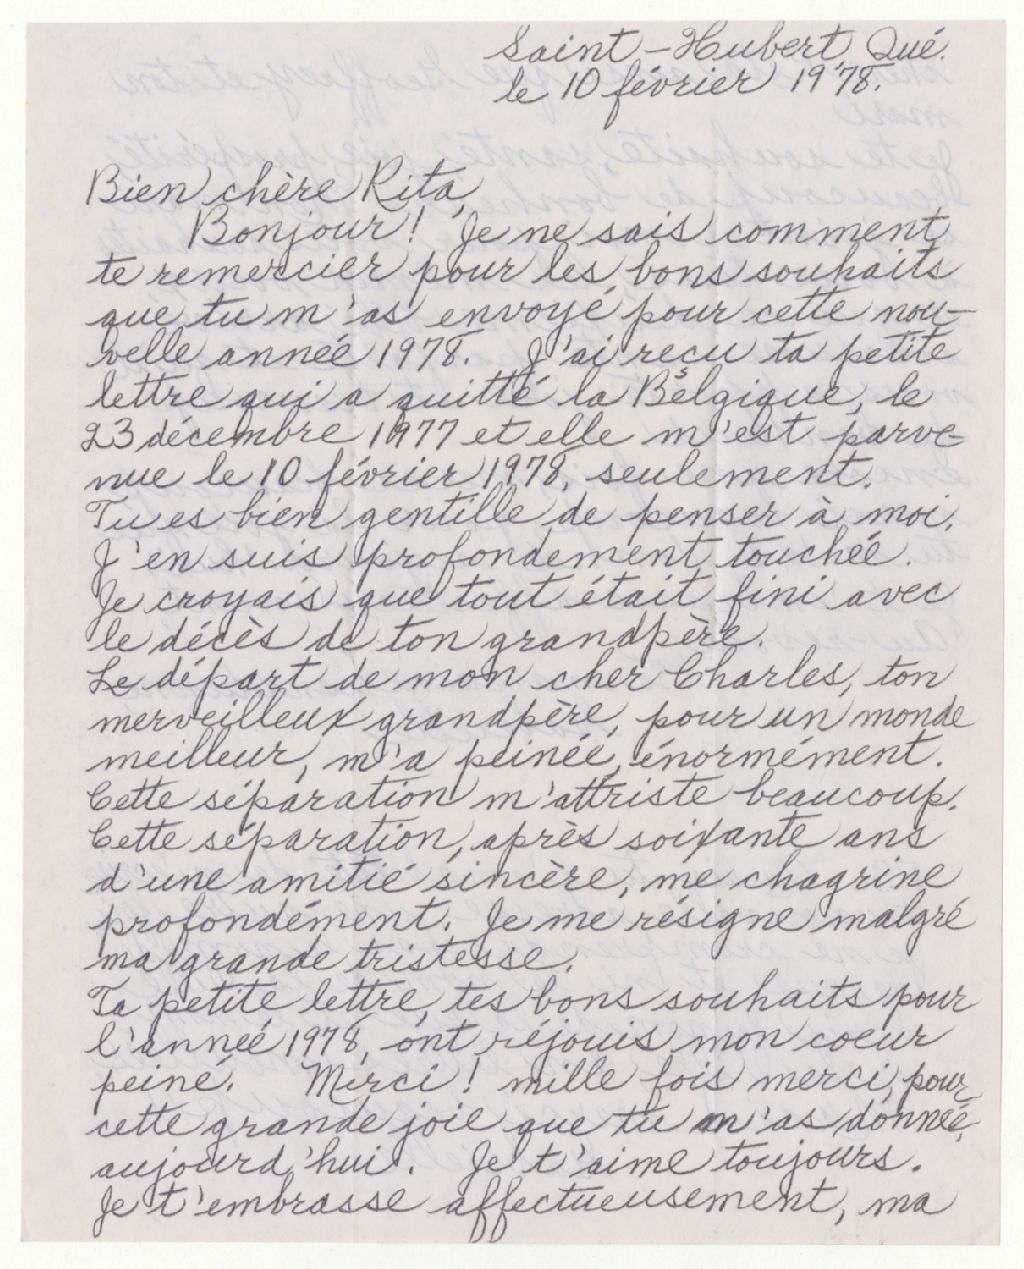 Saint-Hubert, Qué.
le 10 février 1978.
Bien chère Rita,
Bonjour! Je ne sais comment,
te remercier pour les, bons souhaits
que tu m'as envoyé, pour cette nou-
velle année 1978. J'ai reçu ta petite
lettre qui a quitté la Belgique, le
23 décembre 1977 et elle m'est parve-
nue le 10 février 1978, seulement.
Tu es bien gentille de penser à moi.
J'en suis profondément touchée.
Je croyais que tout était fini avec
le décès de ton grandpère.
Le départ de mon cher Charles, ton
merveilleux grandpère, pour un monde
meilleur, m'a peinée, énormément.
Cette séparation m'attriste beaucoup.
Cette séparation, après soixante ans
d'une amitié sincère, me chagrine
profondément. Je me résigne malgré
ma grande tristesse.
Ta petite lettre, tes bons souhaits pour
l'année 1978, ont réjouis mon coeur
peiné. Merci! mille fois merci, pour
cette grande joie que tu m'as donnée,
aujourd'hui. Je t'aime toujours.
Je t'embrasse affectueusement, ma